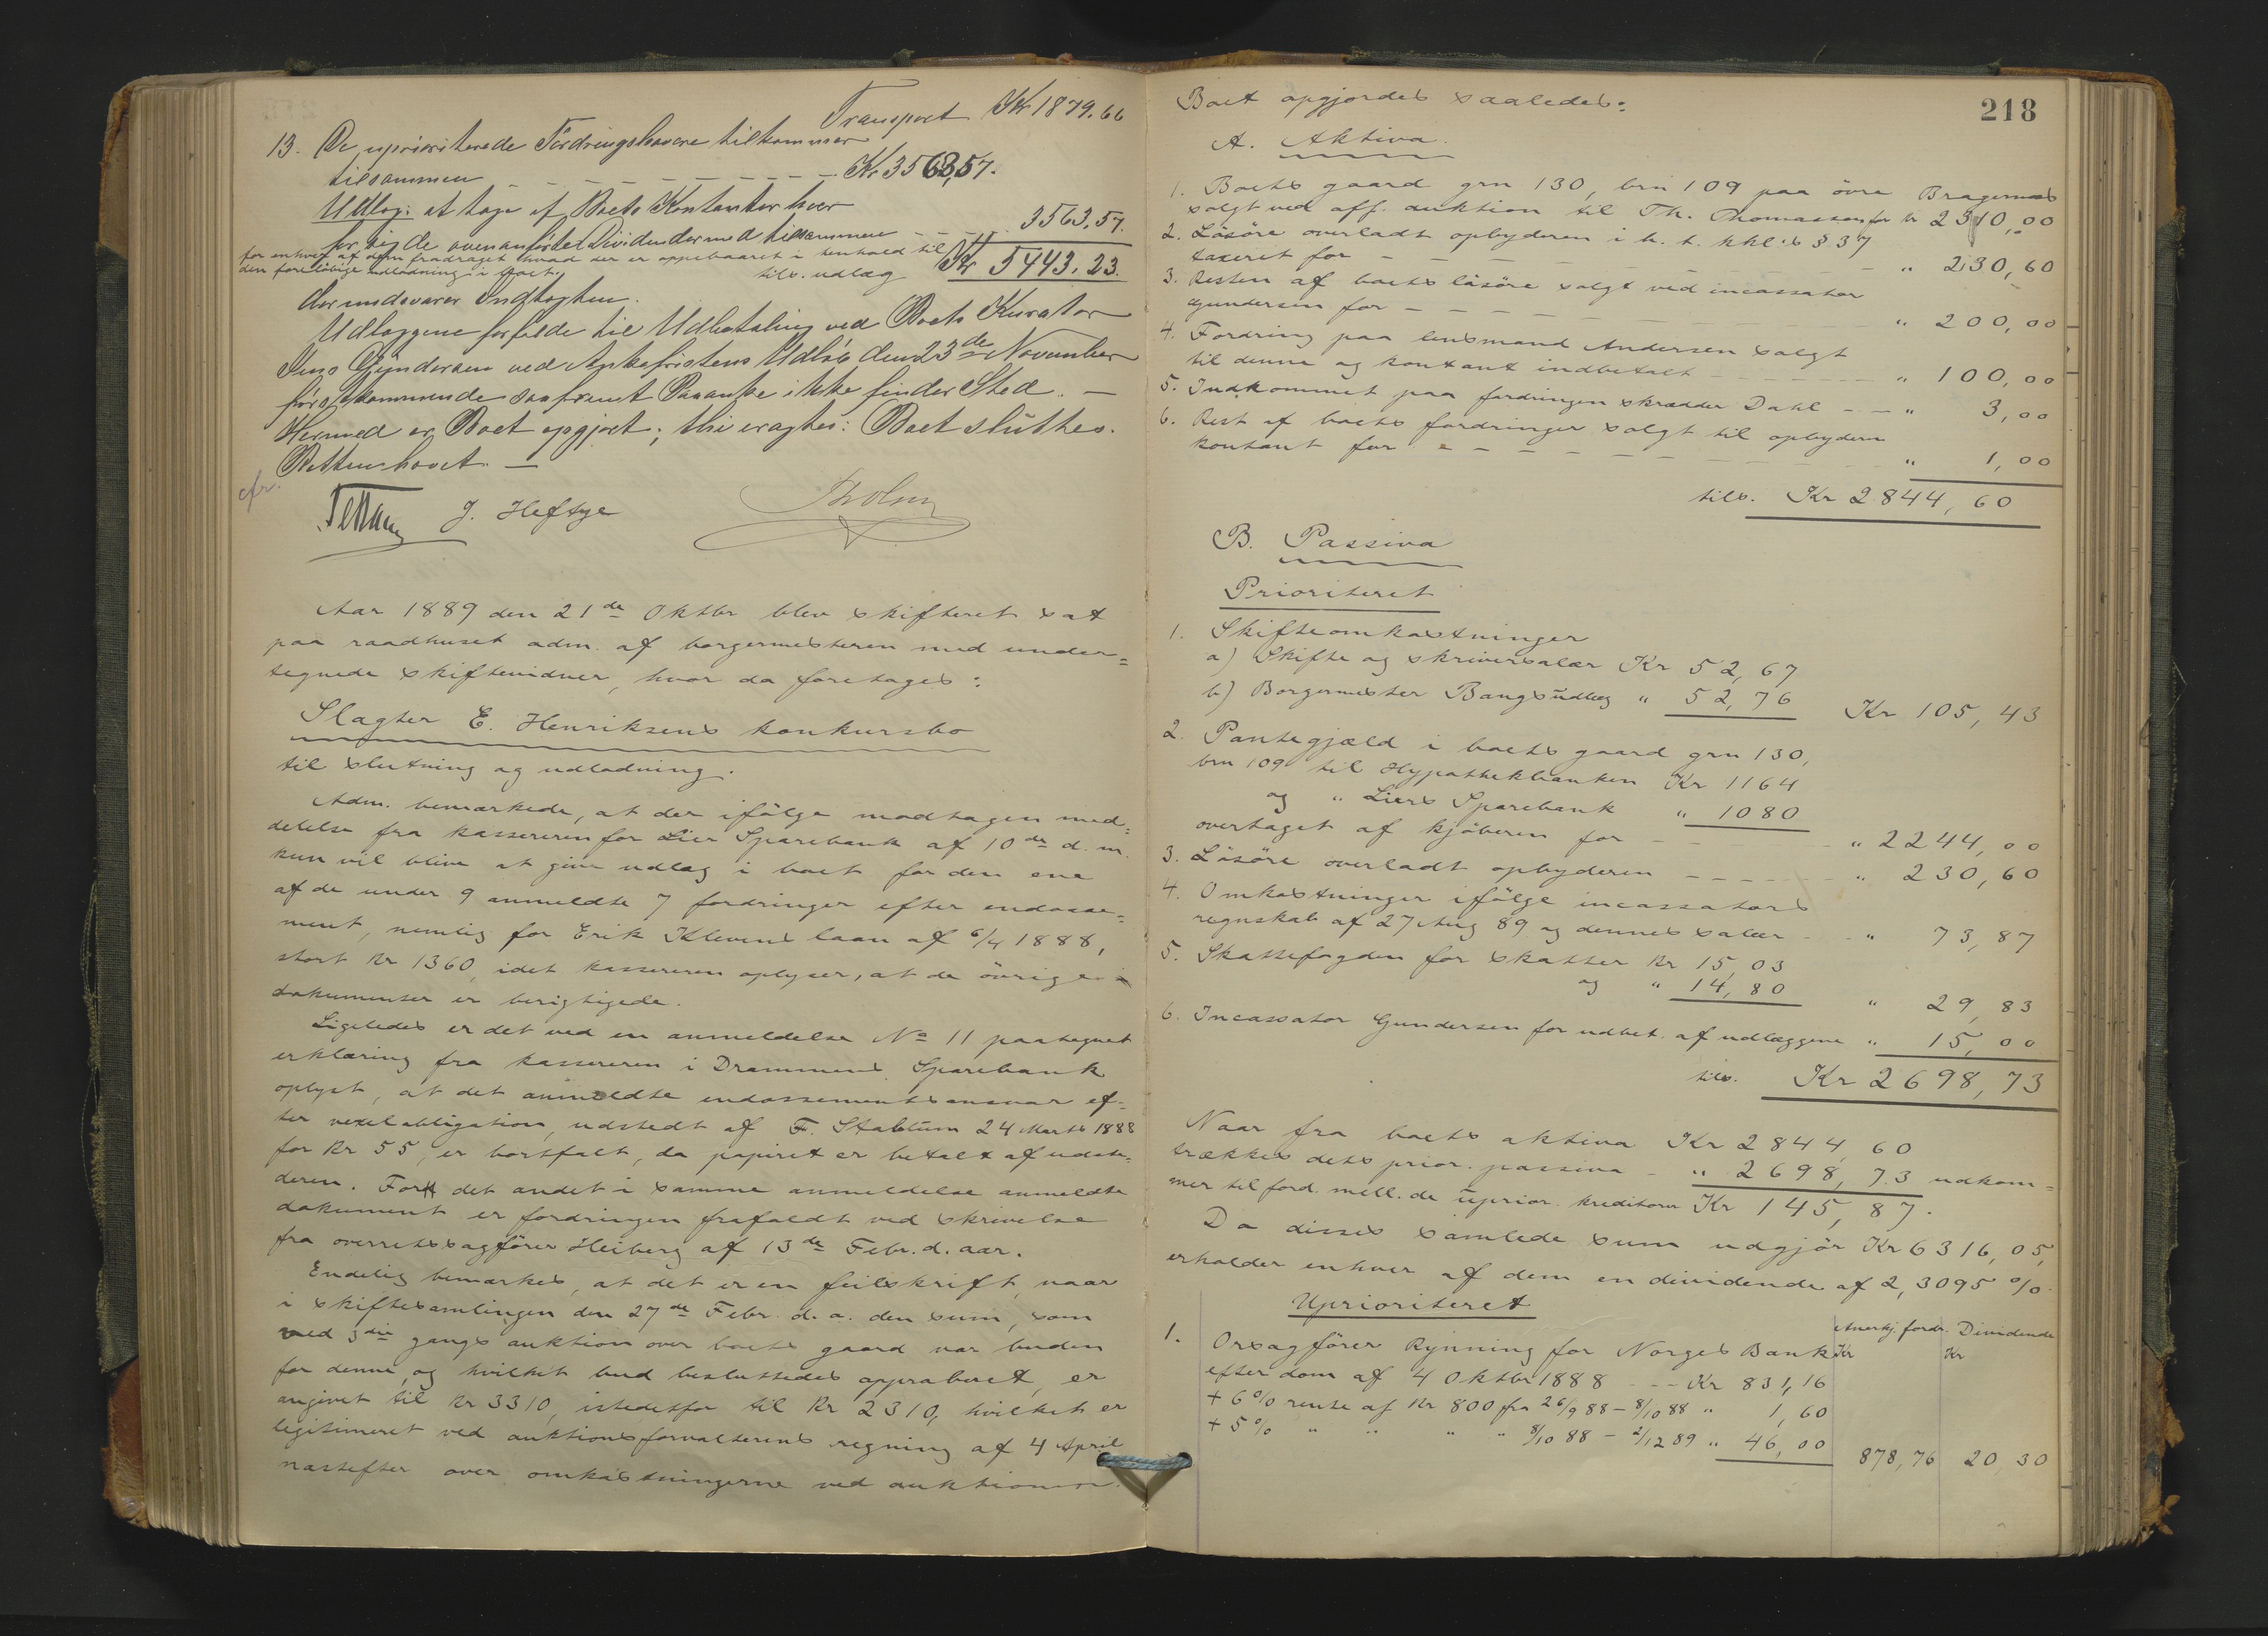 Transport Kr 1879.66
13. De uprioriterede Fordringshavere tilkommer
tilsammen - - - - - - - - Kr 3563,57.
Udlæg: at tage af Boets Kontanter hver
for sig de ovenanførte Dividender med tilsammen - - - 3563,57.
for enhver af dem fradraget hvad der er oppebaaret i henhold til
den foreløbige udlodning i boet.
tils. udlæg Kr 5443.23.
der modsvarer Indtægten.
Udlæggene forfalde til Udbetaling ved Boets Kurator
Jens Gundersen ved Ankefristens Udløb den 23de November
førstkommende saafremt Paaanke ikke finder Sted. —
Hermed er Boet opgjort; thi eragtes: Boet sluttes.
Retten hævet. —
cfr.
J. Heftye
Aar 1889 den 21de Oktbr blev skifteret sat
paa raadhuset adm. af borgermesteren med under=
tegnede skiftevidner, hvor da foretages:
Slagter E. Henriksens konkursbo
til slutning og udlodning.
Adm. bemærkede, at der ifölge modtagen med=
delelse fra kassereren for Lier Sparebank af 10de d. m.
kun vil blive at give udlæg i boet for den ene
af de under 9 anmeldte 7 fordringer efter endosse=
ment, nemlig for Erik Klevens laan af 6/4 1888,
stort Kr 1360, idet kassereren oplyser, at de övrige
dokumenter er berigtigede.
Ligeledes er det ved en anmeldelse No 11 paategnet
erklæring fra kassereren i Drammens Sparebank
oplyst, at det anmeldte endossementsansvar ef=
ter vexelobligation, udstedt af F. Stabtum 24 Marts 1888
for Kr 55, er bortfalt, da papiret er betalt af udste=
deren. For det andet i samme anmeldelse anmeldte
dokument er fordringen frafaldt ved skrivelse
fra overretssagförer Heiberg af 13de Febr. d. aar.
Endelig bemærkes, at det er en feilskrift, naar
i skiftesamlingen den 27de Febr. d. a. den sum, som
ved 3die gangs auktion over boets gaard var buden
for denne, og hvilket bud besluttedes approberet, er
angivet til Kr 3310, istedetfor til Kr 2310, hvilket er
legitimeret ved auktionsforvalterens regning af 4 April
næstefter over omkostningerne ved auktionen.
218
Boet opgjordes saaledes:
A. Aktiva.
1. Boets gaard grn 130, brn 109 paa övre Bragernæs
solgt ved off. auktion til Th. Thomassen for Kr 2310,00
2. Lösöre overladt opbyderen i h. t. kkl's § 37
taxeret for - - - - - - - " 230,60
3. Resten af boets lösöre solgt ved incassator
Gundersen for - - - - - - - " 200,00
4. Fordring paa lensmand Andersen solgt
til denne og kontant indbetalt - - - - " 100,00
5. Indkommet paa fordringen skrædder Dahl - - " 3,00
6. Rest af boets fordringer solgt til opbyderen
kontant for - - - - - - - " 1,00
tils. Kr 2844,60
B. Passiva
Prioriteret
1. Skifteomkostninger
a) Skifte og skriversalær Kr 52,67
b) Borgermester Bangs udlæg " 52,76 Kr 105,43
2. Pantegjæld i boets gaard grn 130,
brn 109 til Hypothekbanken Kr 1164
og " Liers Sparebank " 1080
overtaget af kjöberen for - - - " 2244,00
3. Lösöre overladt opbyderen - - - - " 230,60
4. Omkostninger ifölge incassators
regnskab af 27 Aug 89 og dennes salær - - " 73,87
5. Skattefogden for skatter Kr 15,03
og " 14,80 " 29,83
6. Incassator Gundersen for udbet. af udlæggene " 15,00
tils. Kr 2698,73
Naar fra boets aktiva Kr 2844,60
trækkes dets prior. passiva - " 2698,73 udkom=
mer til ford. mell. de uprior. kreditorer Kr 145,87.
Da disses samlede sum udgjör Kr 6316,05,
erholder enhver af dem en dividende af 2,3095 %.
Uprioriteret
Anerkj. fordr. Dividende
1. Orsagförer Rynning for Norges Bank Kr Kr
efter dom af 4 Oktbr 1888 - - - Kr 831,16
+ 6 % rente af Kr 800 fra 26/9 88 – 8/10 88 " 1,60
+ 5 % " " " " 8/10 88 – 2/12 89 " 46,00 878,76 20,30